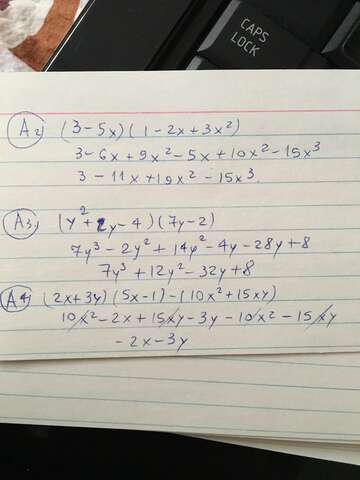 CAPS
LOCK
A2 (3-5x)(1-2x+3x²)
3-6x+9x²-5x+10x²-15x³
3-11x+19x²-15x³.
A3 (y²+2y-4)(7y-2)
7y³-2y²+14y²-4y-28y+8
7y³+12y²-32y+8
A4 (2x+3y)(5x-1)-(10x²+15xy)
10x²-2x+15xy-3y-10x²-15xy
-2x-3y